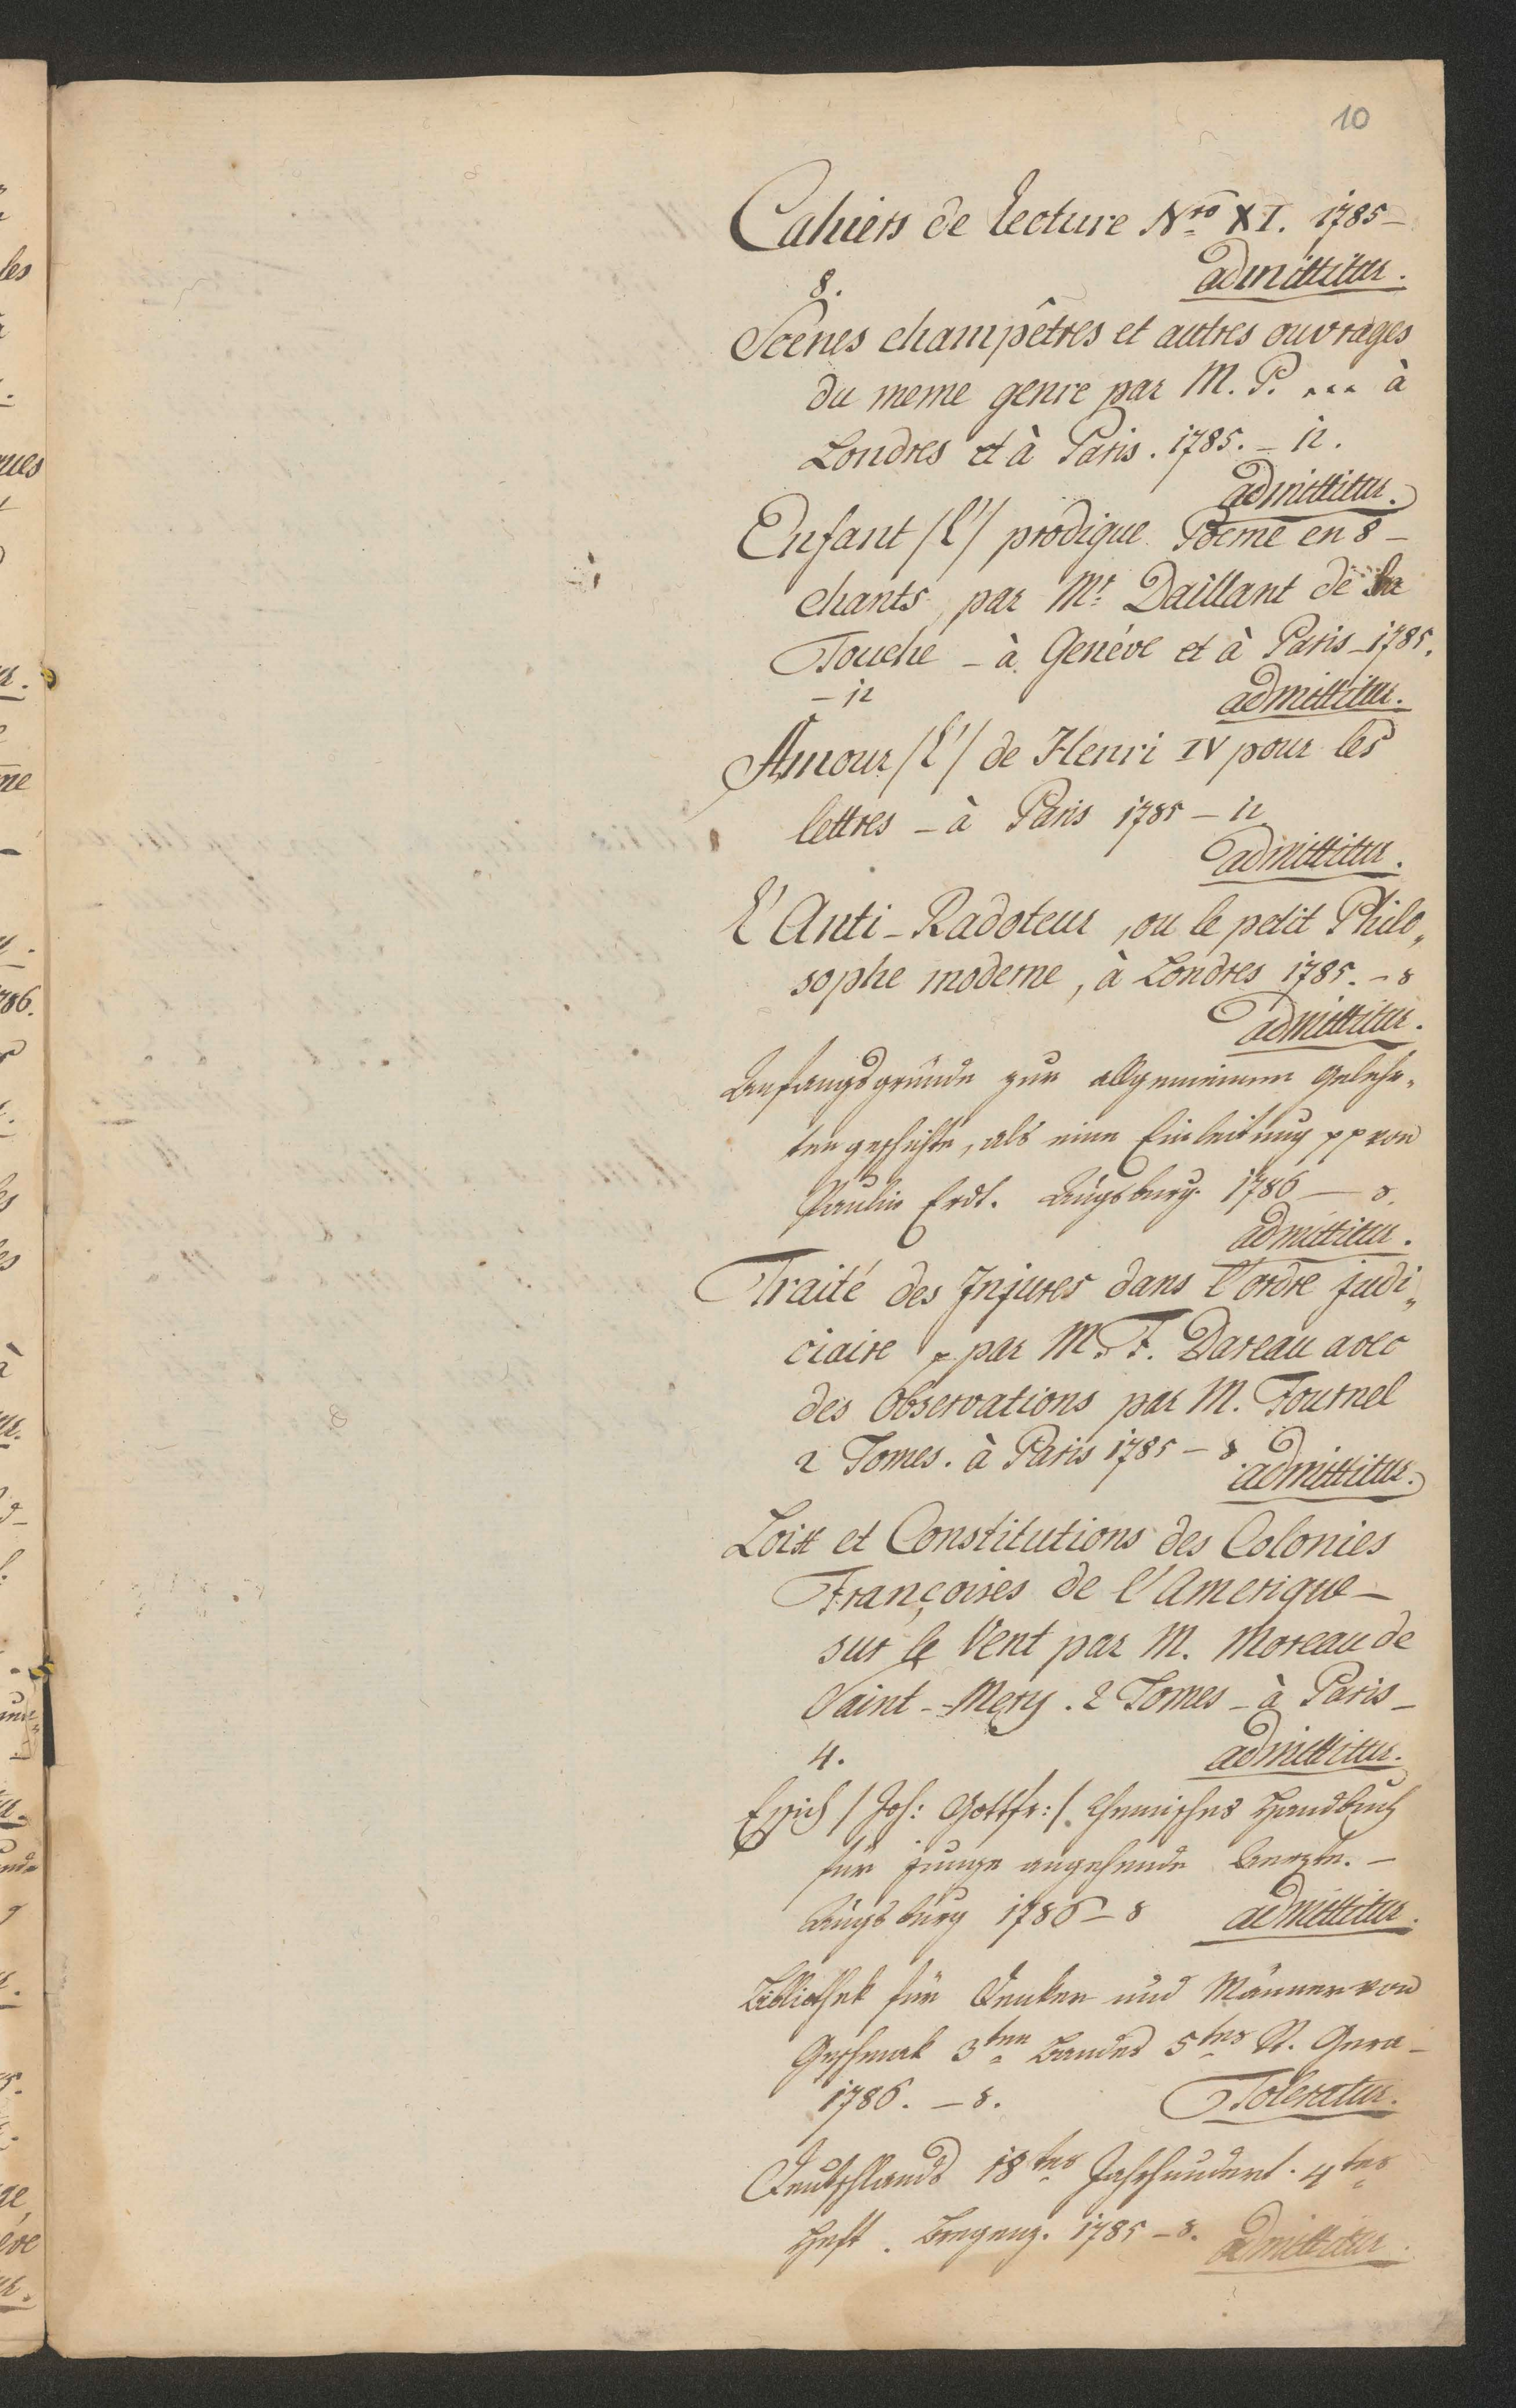 10
Cahiers de Lecture Nro XI. 1785–
8. admittitur.
Scenes champêtres et autres ouvrages
du meme genre par M. P. ... à
Londres et à Paris. 1785. – 12.
admittitur.
Enfant /l'/ prodigue Poeme en 8 –
chants, par Mr. Daillant de la
Touche – à Genéve et à Paris – 1785.
– 12 admittitur.
Amour /l'/ de Henri IV pour les
lettres – à Paris 1785 – 12
admittitur.
L'Anti-Radoteur, ou le petit Philo„
sophe moderne, à Londres 1785. – 8
admittitur.
Anfangsgründe zur allgemeinen Gelehr„
tengeschichte, als eine Einleitung pp von
Paulin Erdt. Augsburg. 1786 – 8.
admittitur.
Traité des Injures dans l'ordre judi„
ciaire p par M. F. Dareau avec
des Observations par M. Fournel
2 Tomes. à Paris 1785 – 8 admittitur.
Loix et Constitutions des Colonies
Françoises de l'Amerique –
sur le Vent par M. Moreau de
Saint-Mery. 2 Tomes – à Paris –
4. admittitur.
Essich /Joh: Gottfr:/ Chemisches Handbuch
für junge angehende Aerzte. –
Augsburg 1786 – 8 admittitur.
Bibliothek für Denker und Männer von
Geschmak 3ten Bandes 5tes St. Gera –
1786. – 8. Toleratur.
Deutschlands 18tes Jahrhundert. 4tes
Heft. Bregenz. 1785 – 8. admittitur.